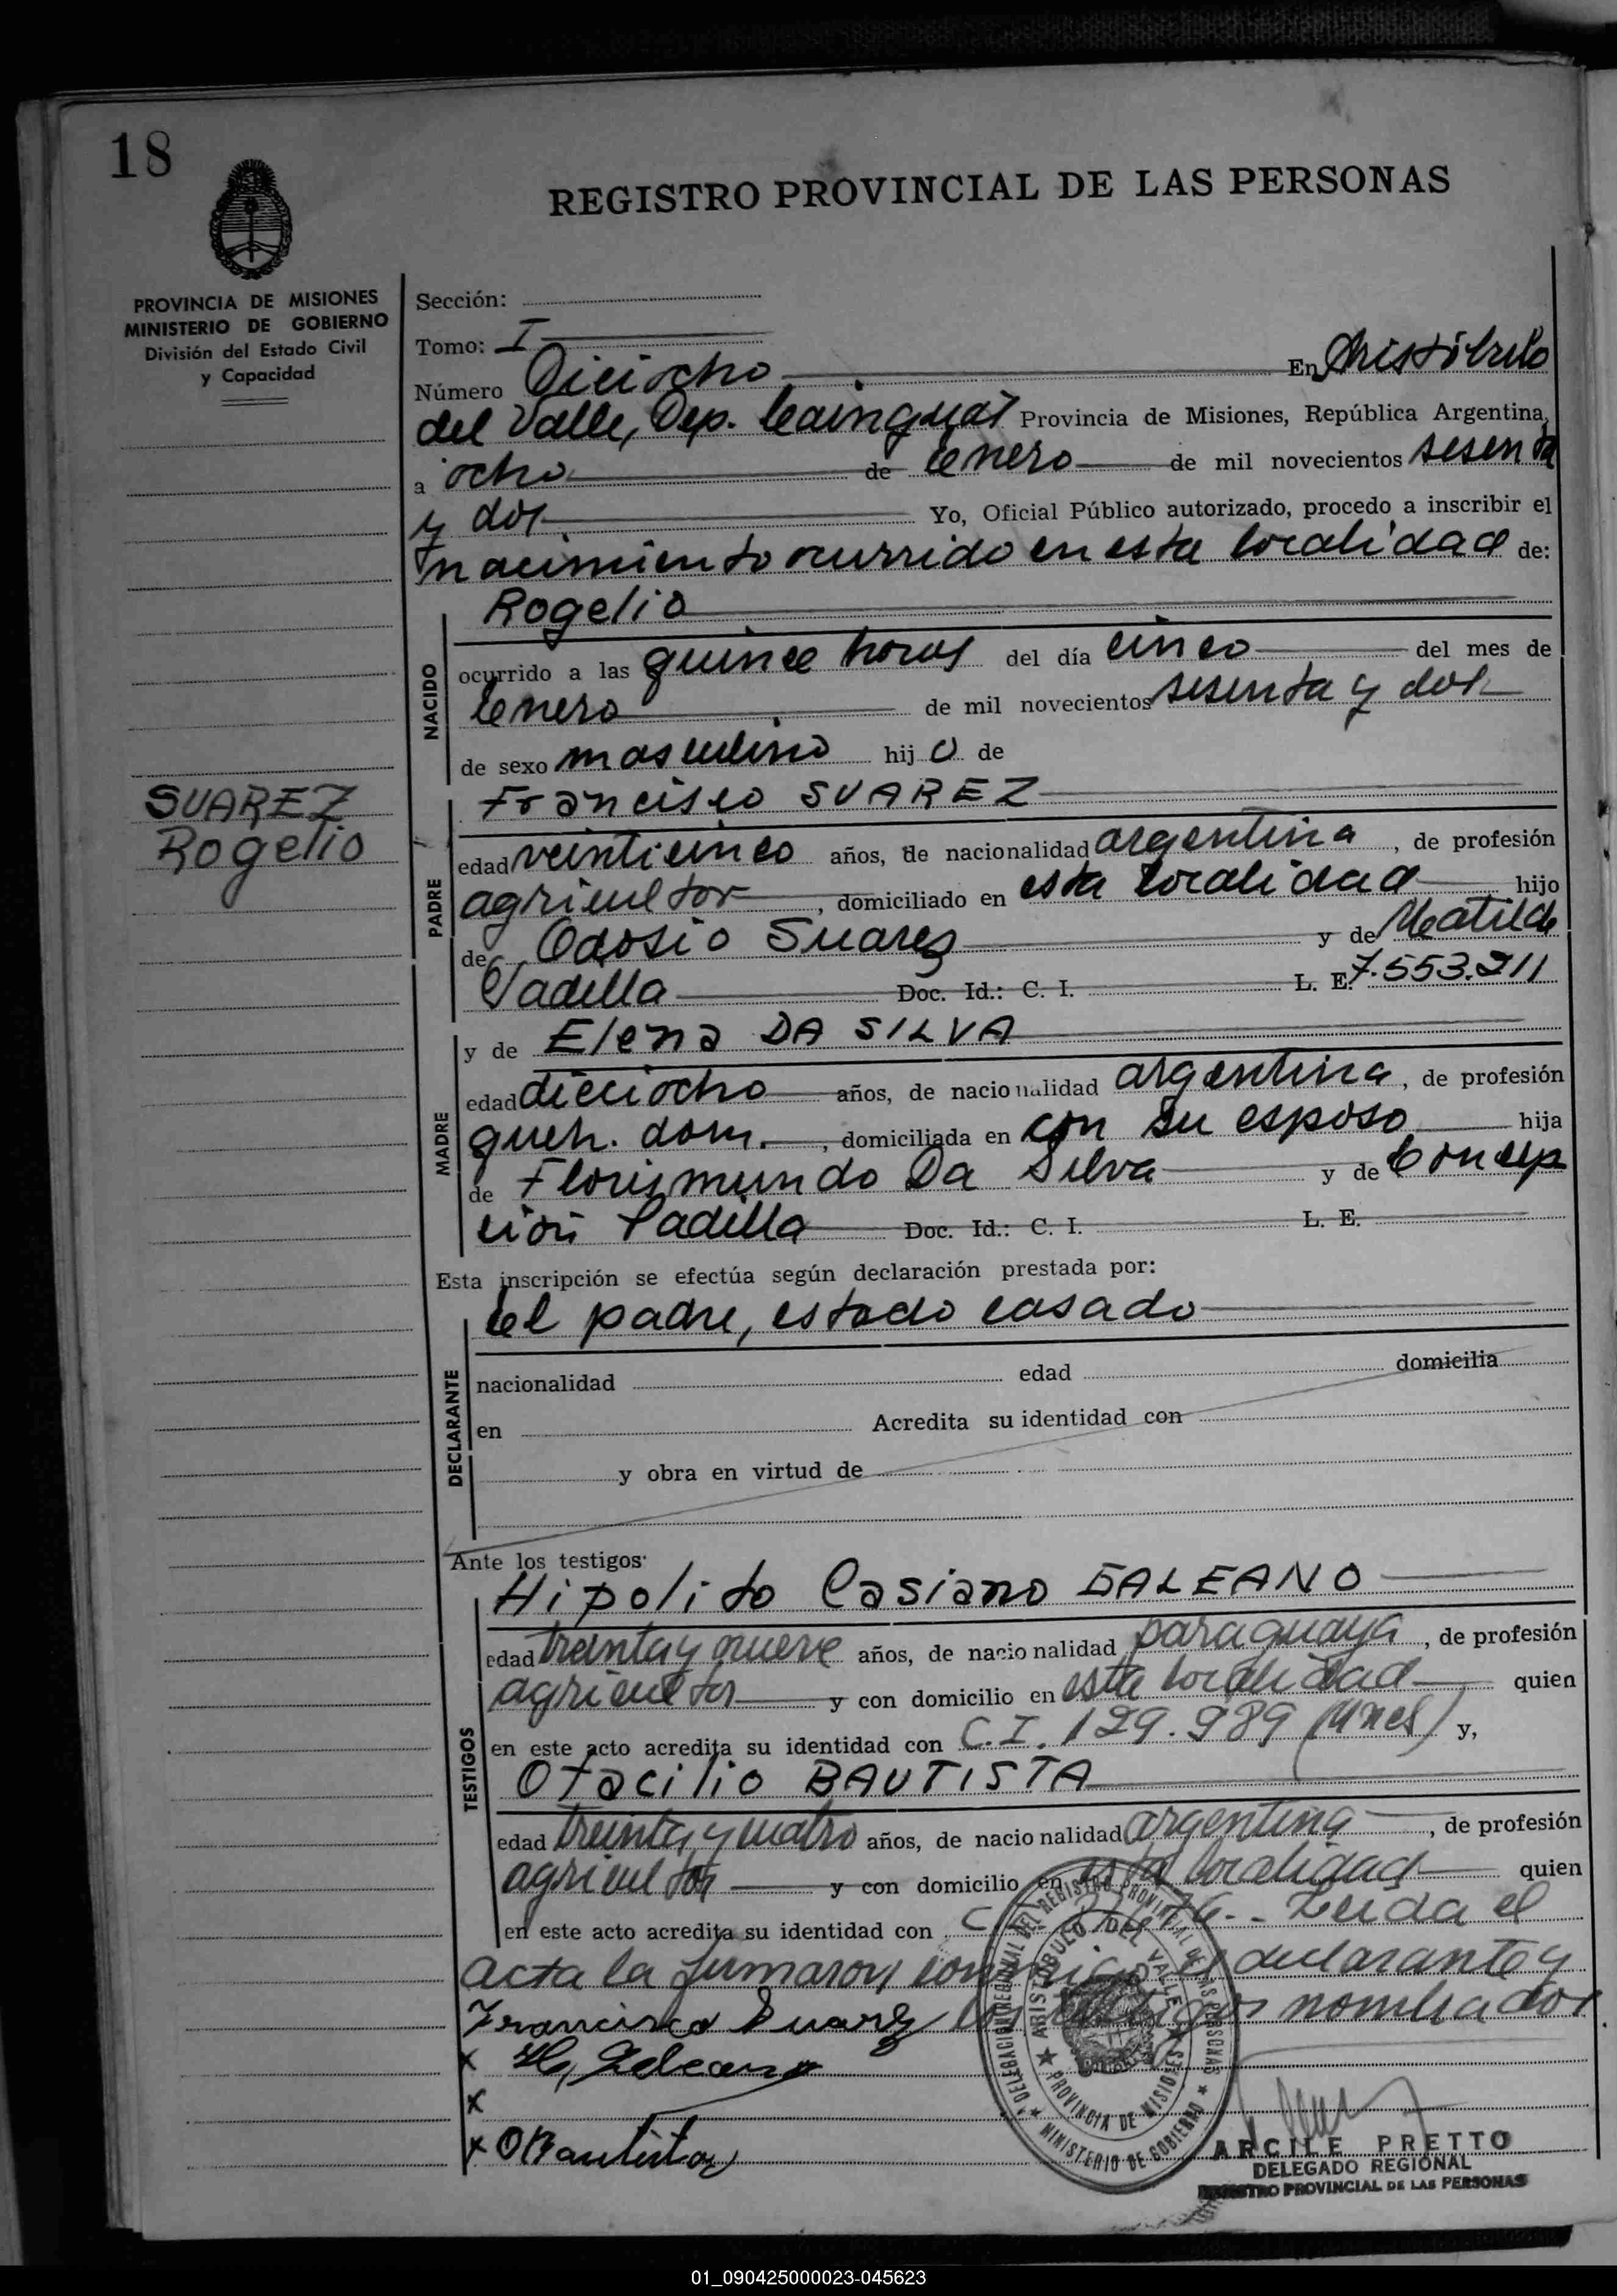 18
REGISTRO PROVINCIAL DE LAS PERSONAS
PROVINCIA DE MISIONES
MINISTERIO DE GOBIERNO
División del Estado Civil
y Capacidad
SUAREZ
Rogelio
Sección:
Tomo: I
Número Dieciocho En Aristóbulo
del Valle, Dep. Cainguás Provincia de Misiones, República Argentina,
a ocho de Enero de mil novecientos sesenta
y dos Yo, Oficial Público autorizado, procedo a inscribir el
nacimiento ocurrido en esta localidad de:
NACIDO
Rogelio
ocurrido a las quince horas del día cinco del mes de
Enero de mil novecientos sesenta y dos
de sexo masculino hij o de
PADRE
Francisco SUAREZ
edad veinticinco años, de nacionalidad argentina, de profesión
agricultor, domiciliado en esta localidad hijo
de Odosio Suarez y de Matilde
Padilla Doc. Id.: C. I. L. E. 7.553.211
MADRE
y de Elena DA SILVA
edad dieciocho años, de nacionalidad argentina, de profesión
queh. dom., domiciliada en con su esposo hija
de Florismundo Da Silva y de Concep
ción Padilla Doc. Id.: C. I. L. E.
Esta inscripción se efectúa según declaración prestada por:
DECLARANTE
el padre, estado casado
nacionalidad edad domicilia
en Acredita su identidad con
y obra en virtud de
Ante los testigos:
TESTIGOS
Hipolito Casiano GALEANO
edad treinta y nueve años, de nacionalidad paraguaya, de profesión
agricultor y con domicilio en esta localidad quien
en este acto acredita su identidad con C.I. 129.989 (Mnes) y,
Otacilio BAUTISTA
edad treinta y cuatro años, de nacionalidad argentina, de profesión
agricultor y con domicilio en esta localidad quien
en este acto acredita su identidad con C. Leida el
acta la firmaron conmigo el declarante y
Francisco Suarez los testigos nombrados
x H. Galeano
x
x O Bautista
DELEGACION REGIONAL DEL REGISTRO PROVINCIAL DE LAS PERSONAS
ARISTOBULO DEL VALLE
PROVINCIA DE MISIONES
MINISTERIO DE GOBIERNO
ARCILE PRETTO
DELEGADO REGIONAL
REGISTRO PROVINCIAL DE LAS PERSONAS
01_090425000023-045623